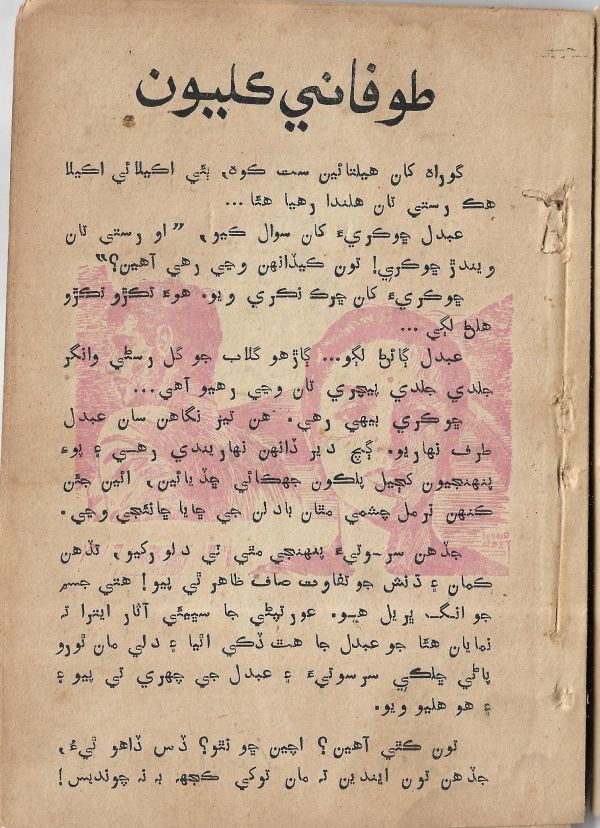 طوفاني ڪليون
گوراه کان هيلتائين ست ڪوه، ٻئي اڪيلائي اڪيلا
هڪ رستي تان هلندا رهيا هئا ...
عبدل ڇوڪريءَ کان سوال ڪيو، ”او رستي تان
ويندڙ ڇوڪري! تون ڪيڏانهن وڃي رهي آهين؟“
ڇوڪريءَ کان ڇرڪ نڪري ويو. هوءَ تڪڙو تڪڙو
هلڻ لڳي ...
عبدل ڳائڻ لڳو... ڳاڙهو گلاب جو گل رستي وانگر
جلدي جلدي پيچري تان وڃي رهيو آهي...
ڇوڪري بيهي رهي. هن تيز نگاهن سان عبدل
طرف نهاريو. ڳچ دير ڏانهن نهاريندي رهي ۽ پوءِ
پنهنجيون ڪڄيل پلڪون جهڪائي ڇڏيائين، ائين جئن
ڪنهن نرمل چشمي مٿان بادلن جي ڇايا ڇائنجي وڃي.
جڏهن سرسوتيءَ پنهنجي مٿي تي دلو رکيو، تڏهن
ڪمان ۽ ڏنش جو تفاوت صاف ظاهر ٿي پيو! هتي جسم
جو انگ ڀريل هيو. عورتپڻي جا سڀيئي آثار ايترا ته
نمايان هئا جو عبدل جا هٿ ڏڪي اٿيا ۽ دلي مان ٿورو
پاڻي ڇلڪي سرسوتيءَ ۽ عبدل جي چهري تي پيو ۽
۽ هو هليو ويو.
تون ڪٿي آهين؟ اچين ڇو نٿو؟ ڏس ڏاهو ٿيءُ،
جڏهن تون ايندين ته مان توکي ڪجهه به نه چونديس!